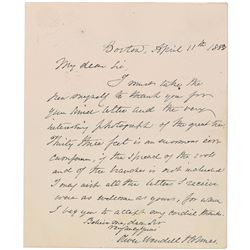 Boston, April 11th 188
My dear Sir
I must take the
pen myself to thank you for
your kind letter and the very
interesting photograph of the great tree
Thirty three feet is an enormous
if the spread of the roots
and of the branches is not included
I may wish all the letters I receive
were as welcome as yours, for which
I beg you to accept my cordial thanks.
Believe me, dear Sir
Very truly yours
Oliver Wendell Holmes.